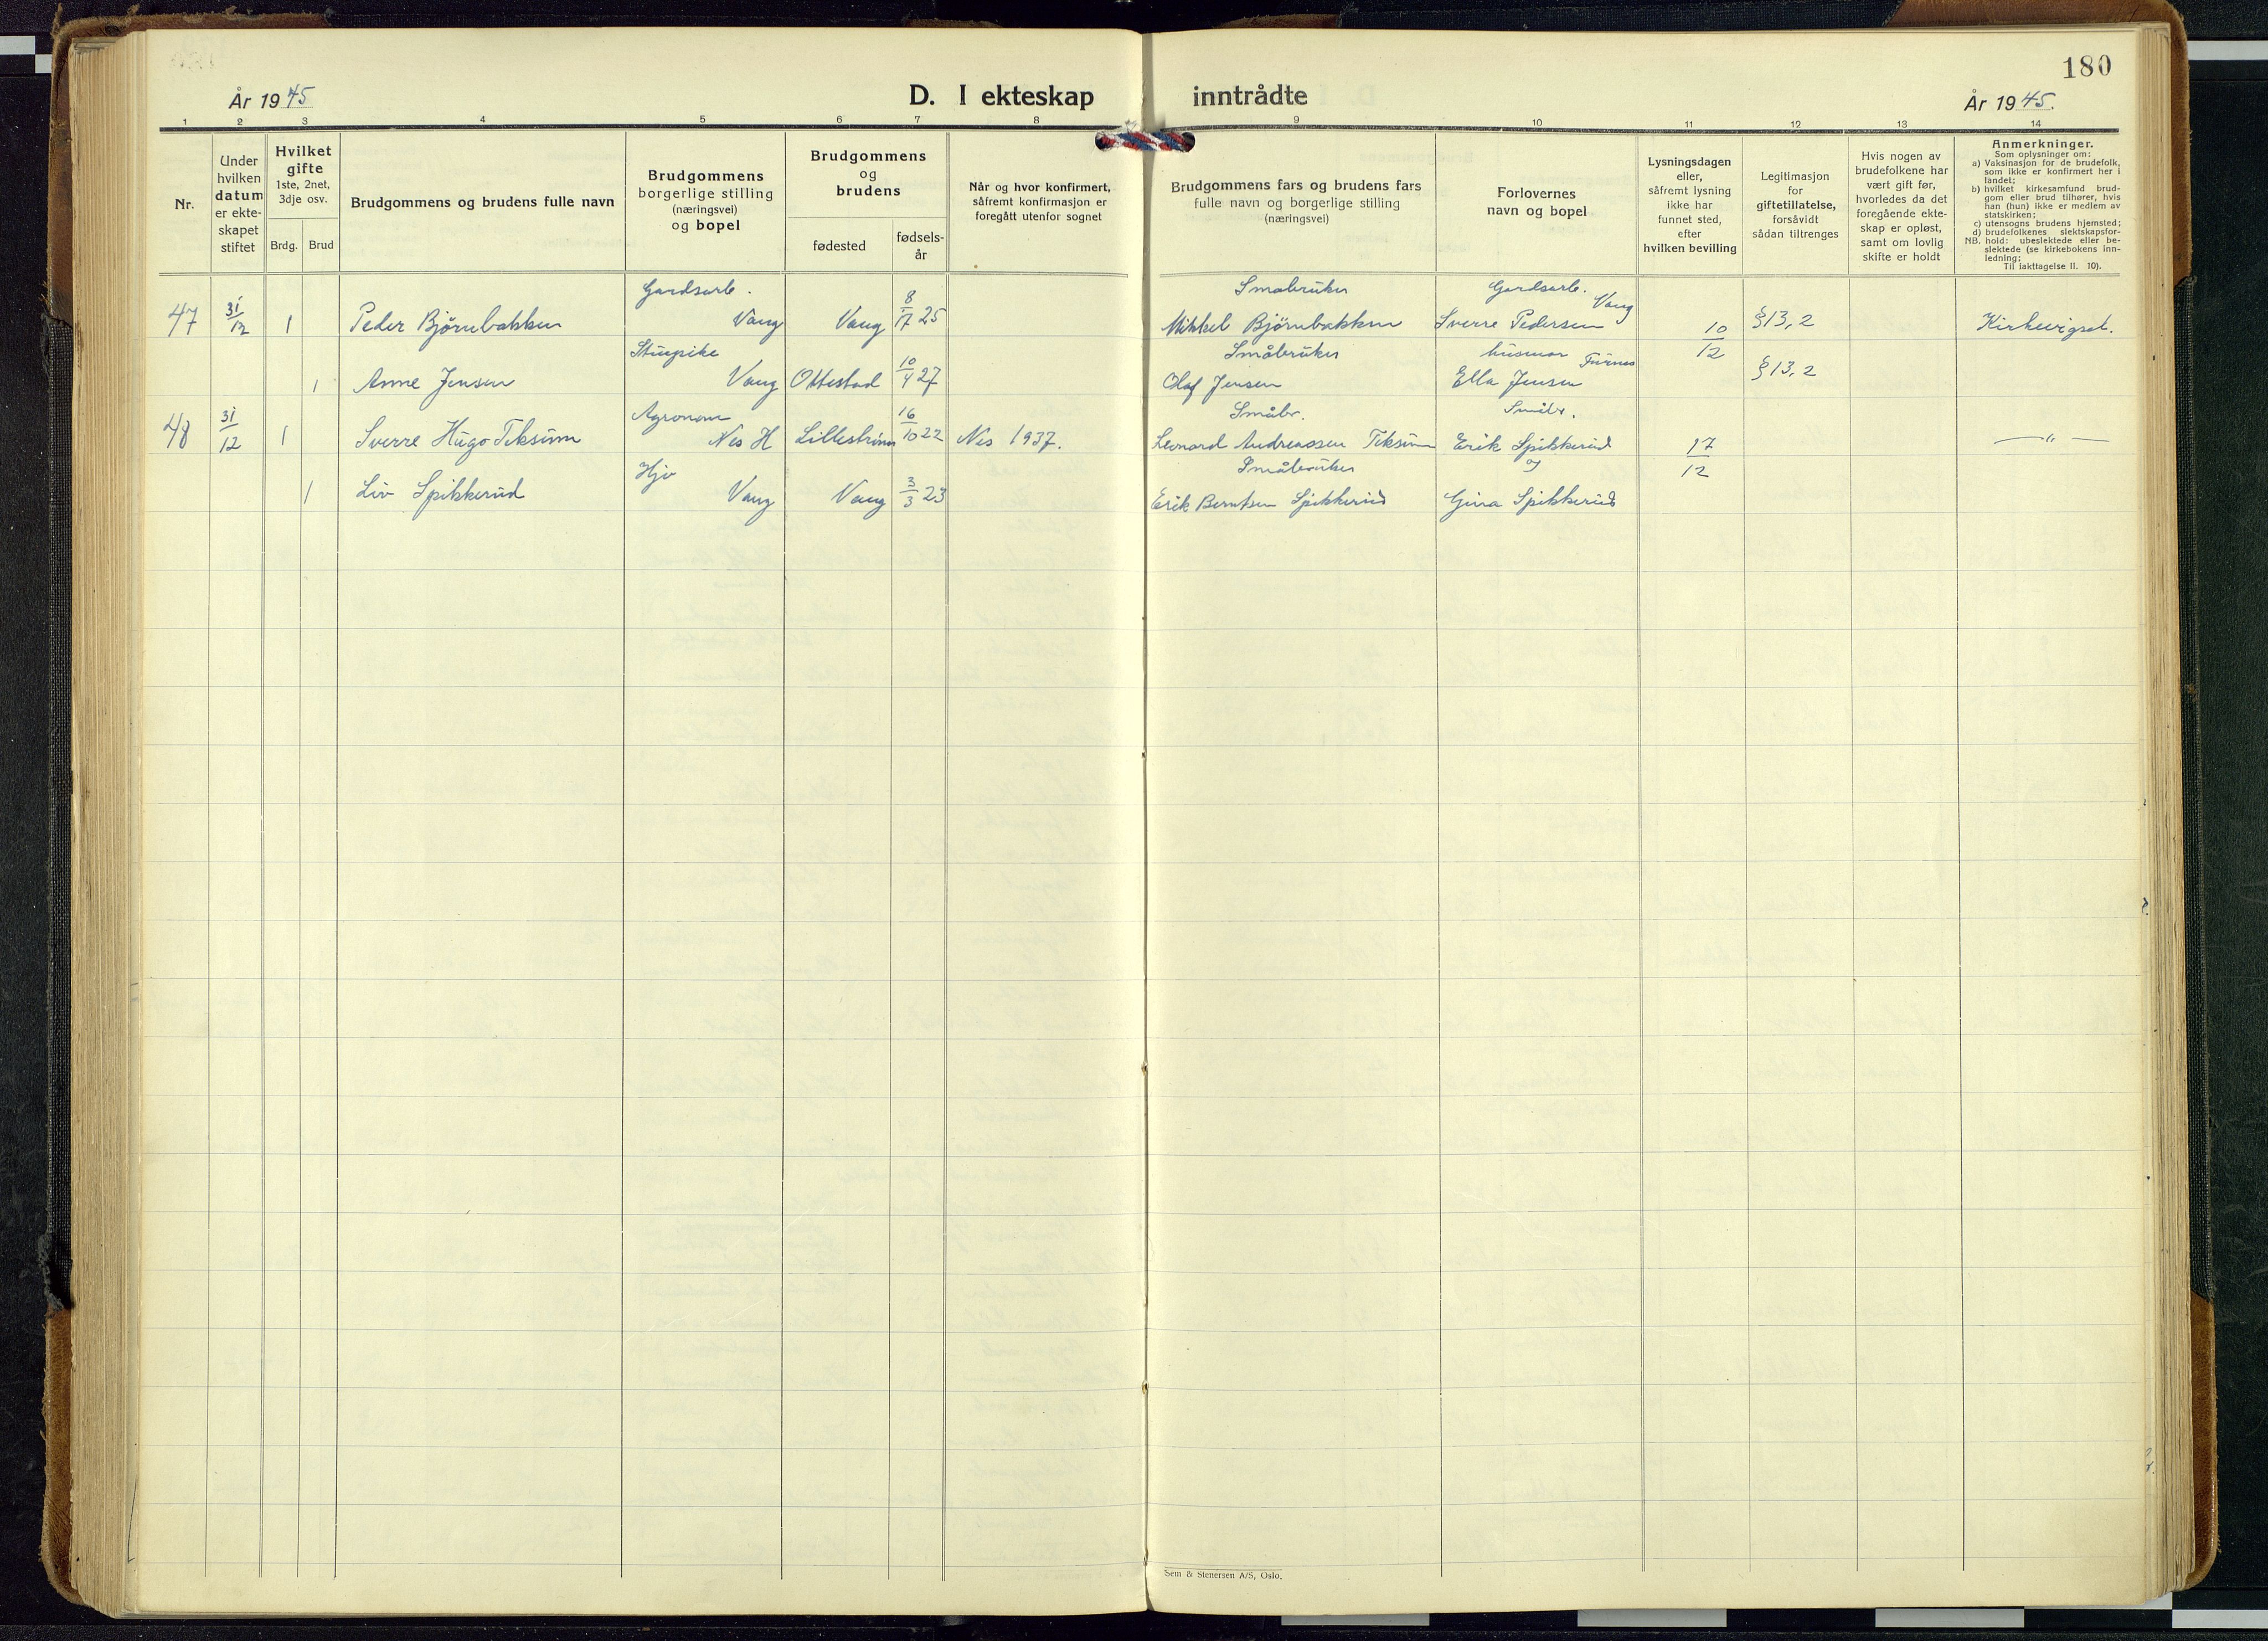 180
År 1945
D. I ekteskap inntrådte
År 1945.
1 2 3 4 5 6 7 8 9 10 11 12 13 14
Nr.
Under
hvilken
datum
er ekte-
skapet
stiftet
Hvilket
gifte
1ste, 2net,
3dje osv.
Brdg. Brud
Brudgommens og brudens fulle navn
Brudgommens
borgerlige stilling
(næringsvei)
og bopel
Brudgommens
og
brudens
fødested
fødsels-
år
Når og hvor konfirmert,
såfremt konfirmasjon er
foregått utenfor sognet
Brudgommens fars og brudens fars
fulle navn og borgerlige stilling
(næringsvei)
Forlovernes
navn og bopel
Lysningsdagen
eller,
såfremt lysning
ikke har
funnet sted,
efter
hvilken bevilling
Legitimasjon
for
giftetillatelse,
forsåvidt
sådan tiltrenges
Hvis nogen av
brudefolkene har
vært gift før,
hvorledes da det
foregående ekte-
skap er opløst,
samt om lovlig
skifte er holdt
Anmerkninger.
Som oplysninger om:
a) Vaksinasjon for de brudefolk,
som ikke er konfirmert her i
landet;
b) hvilket kirkesamfund brud-
gom eller brud tilhører, hvis
han (hun) ikke er medlem av
statskirken;
c) utensogns brudens hjemsted;
d) brudefolkenes slektskapsfor-
NB. hold: ubeslektede eller be-
slektede (se kirkebokens inn-
ledning;
Til iakttagelse II. 10).
Gardsarb. Småbruker Gardsarb. Vang
47 31/12 1 Peder Bjørnbakken Vang Vang 8/17 25 Mikkel Bjørnbakken Sverre Pedersen 10/12 §13,2 Kirkevigsel.
Stuepike Småbruker husmor Furnes
1 Anne Jensen Vang Ottestad 10/4 27 Olaf Jensen Ella Jensen §13,2
Agronom Småbr. Småbr.
48 31/12 1 Sverre Hugo Teksum Nes H Lillestrøm 16/10 22 Nes 1937. Leonard Andreassen Teksum Erik Spikkerud 17/12 — " —
Hjv Småbruker og
1 Liv Spikkerud Vang Vang 3/3 23 Erik Berntsen Spikkerud Gina Spikkerud
Sem & Stenersen A/S, Oslo.